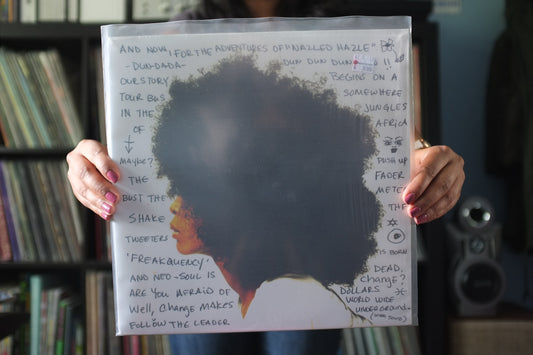 AND NOW, "FOR THE ADVENTURES OF "NALLED HAZLE"
-DUN-DADA- DUN DUN DUN !!
OUR STORY BEGINS ON A
TOUR BUS SOMEWHERE
IN THE JUNGLES
OF AFRICA
MAYBE? PUSH UP
THE FADER
BUST THE METER
SHAKE THE
TWEETERS
'FREAKQUENCY' IS BORN
AND NEO-SOUL IS DEAD,
ARE YOU AFRAID OF CHANGE?
Well, CHANGE MAKES DOLLARS
FOLLOW THE LEADER WORLD WIDE
UNDERGROUND-